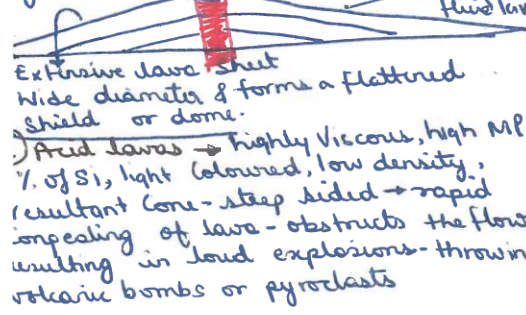 fluid lav
Extinsive lava sheet
Wide diameter & forms a flattened
shield or dome.
) Acid lavas → highly Viscous, high MP
% of Si, light Coloured, low density,
resultant Cone - steep sided → rapid
congealing of lava - obstructs the flow
resulting in loud explosions - throwin
volcanic bombs or pyroclasts